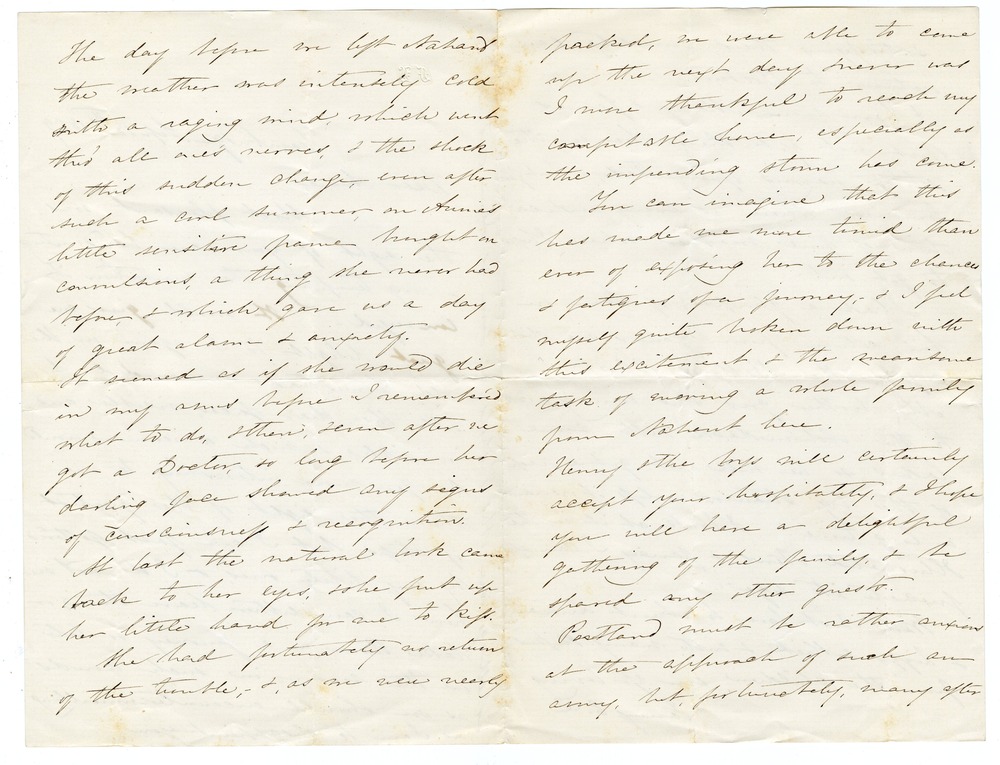 The day before we left Nahant
the weather was intensely cold
with a raging wind, which went
thro' all one's nerves, & the shock
of this sudden change, even after
such a cool summer, on Annie's
little sensitive frame brought on
convulsions, a thing she never had
before, & which gave us a day
of great alarm & anxiety.
It seemed as if she would die
in my arms before I remember'd
what to do, & then, & even after we
got a Doctor, so long before her
darling face showed any signs
of consciousness & recognition.
At last the natural look came
back to her eyes, & she put up
her little hand for me to kiss.
She had fortunately no return
of the trouble, &, as we were nearly
packed, we were able to come
up the next day & never was
I more thankful to reach my
comfortable home, especially as
the impending storm has come.
You can imagine that this
has made me more timid than
ever of exposing her to the chances
& fatigues of a journey, & I feel
myself quite broken down with
this excitement & the wearisome
task of moving a whole family
from Nahant here.
Henry & the boys will certainly
accept your hospitality, & I hope
you will have a delightful
gathering of the family, & be
spared any other guests.
Portland must be rather anxious
at the approach of such an
army, but, fortunately, many after